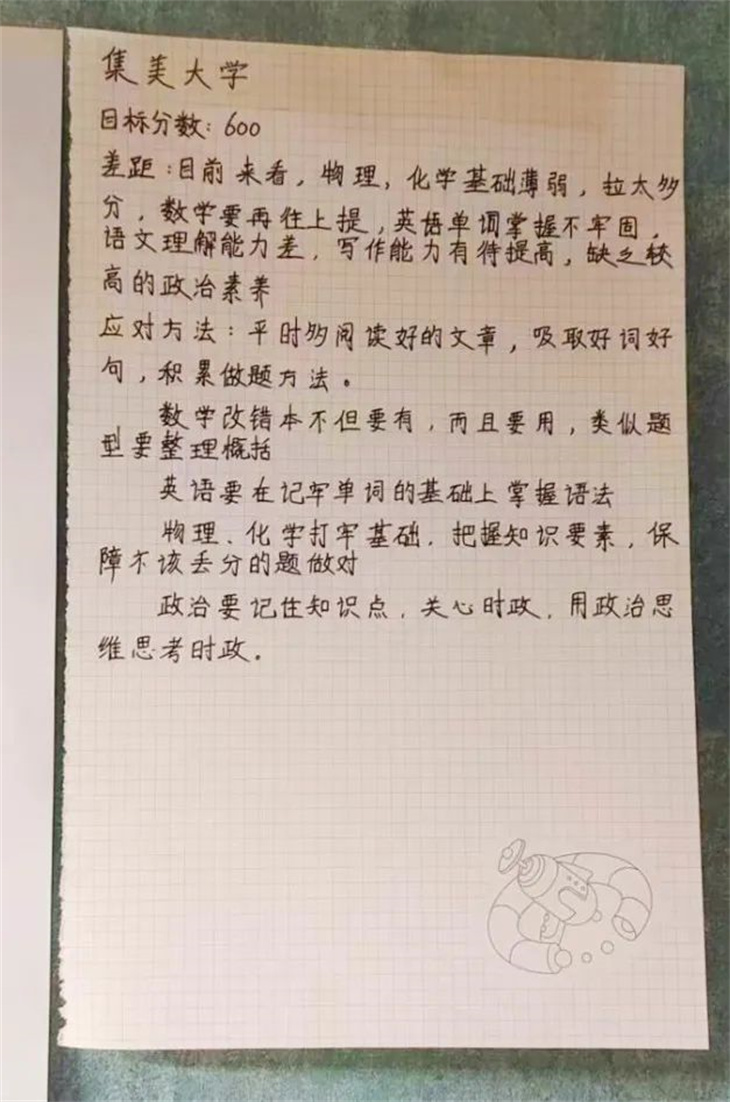 集美大学
目标分数：600
差距：目前来看，物理，化学基础薄弱，拉太多
分，数学要再往上提，英语单词掌握不牢固，
语文理解能力差，写作能力有待提高，缺乏较
高的政治素养
应对方法：平时多阅读好的文章，吸取好词好
句，积累做题方法。
数学改错本不但要有，而且要用，类似题
型要整理概括
英语要在记牢单词的基础上掌握语法
物理、化学打牢基础，把握知识要素，保
障不该丢分的题做对
政治要记住知识点，关心时政，用政治思
维思考时政。